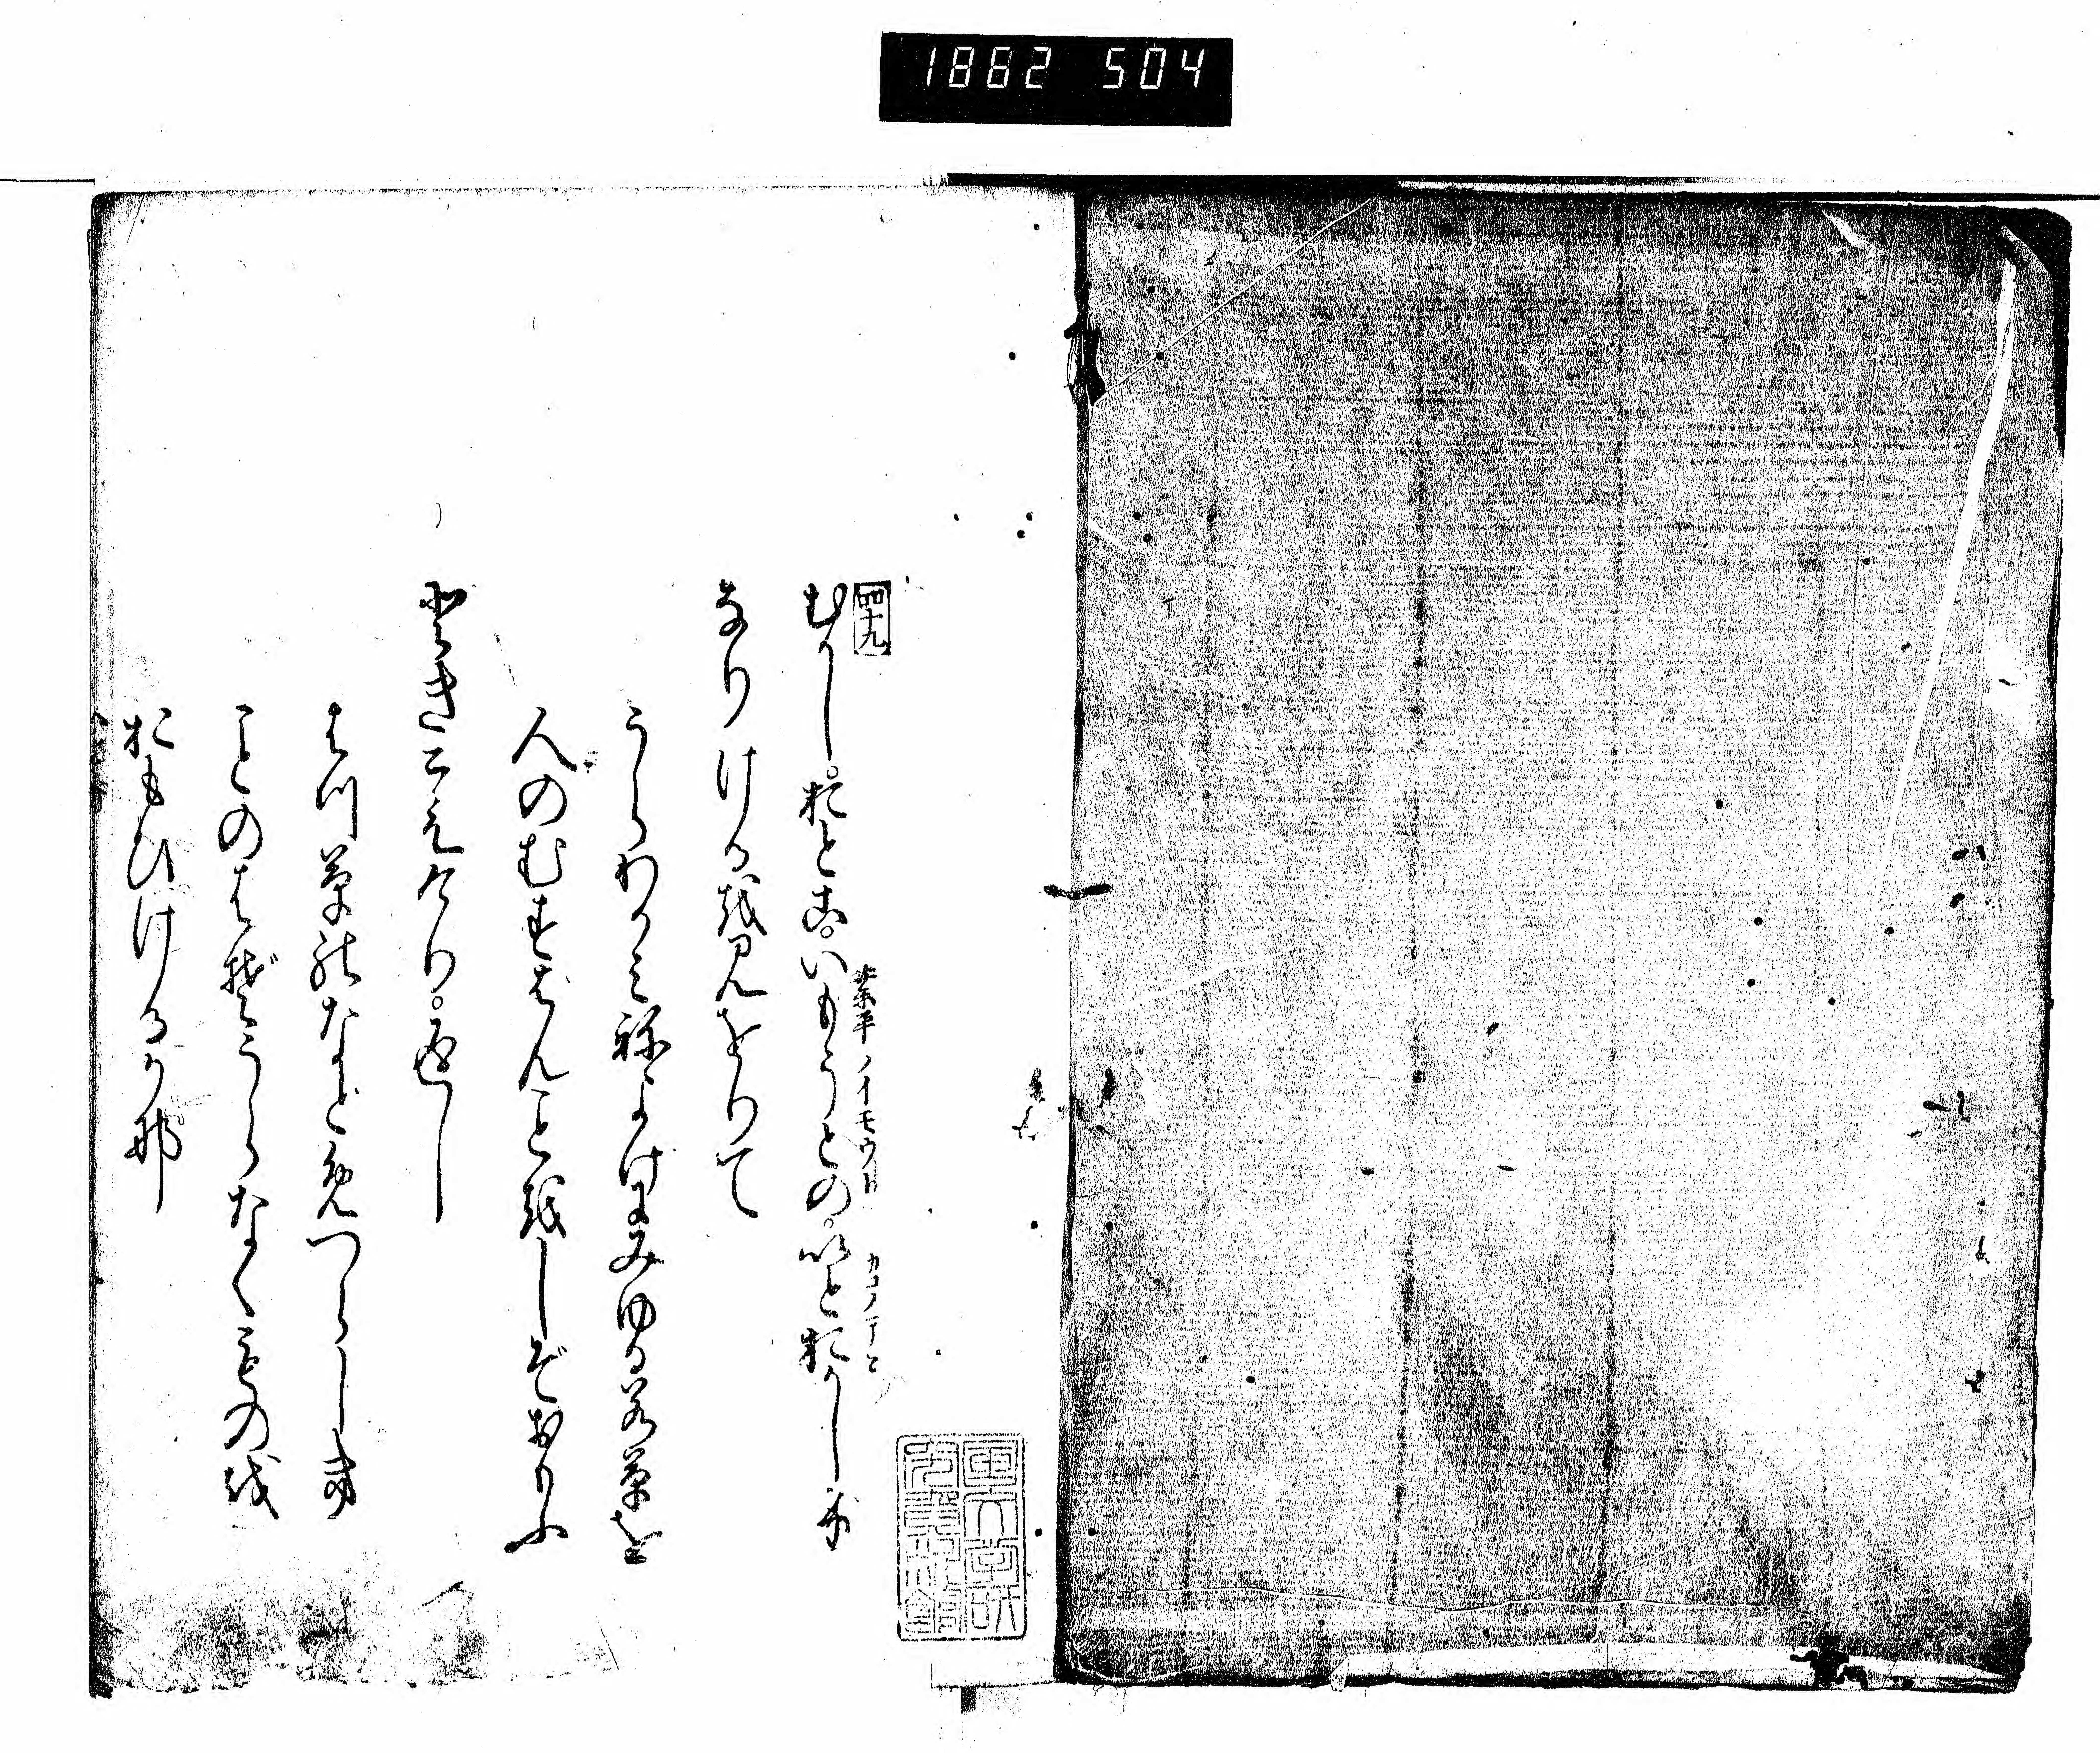 1862 504
四十九
むかし。おとこ。いもうとの。いとおかしげ
業平ノイモウト
なりけるを見をりて
うらわかみねよげにみゆる若草を
人のむすばんことをしぞおもふ
ときこえけり。返し
はつ草のなどめづらしき
ことのはぞうらなくものを
おもひけるかな